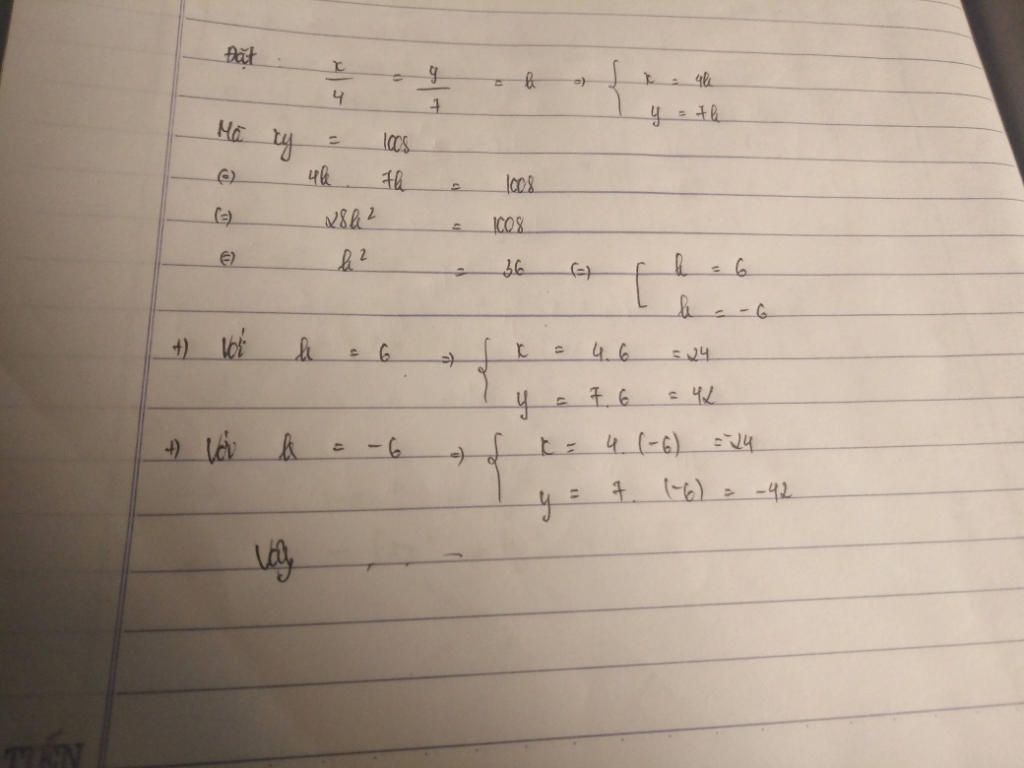 Đặt: x/4 = y/7 = k => { x = 4k
y = 7k
Mà xy = 1008
(=) 4k . 7k = 1008
(=) 28k² = 1008
(=) k² = 36 (=) [ k = 6
k = -6
+) Với k = 6 => { x = 4.6 = 24
y = 7.6 = 42
+) Với k = -6 => { x = 4.(-6) = -24
y = 7.(-6) = -42
Vậy ...
TIẾN